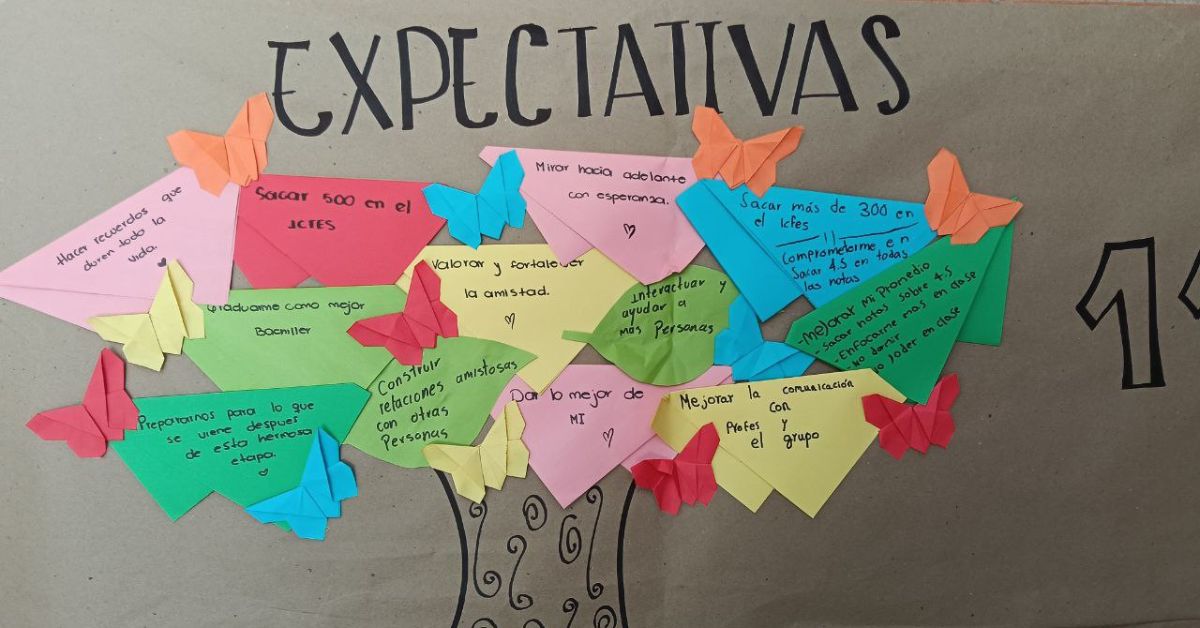 EXPECTATIVAS
Hacer recuerdos que
duren todo la
vida.
Sacar 500 en el
ICFES
Mirar hacia adelante
con esperanza.
Sacar más de 300 en
el Icfes
Comprometerme en
Sacar 4.5 en todas
las notas
Graduarme como mejor
Bachiller
Valorar y fortalecer
la amistad.
Interactuar y
ayudar a
más Personas
-Mejorar Mi Promedio
-Sacar notas sobre 4.5
-Enfocarme mas en clase
-No dormir
joder en clase
Prepararnos para lo que
se viene despues
de esta hermosa
etapa.
Construir
relaciones amistosas
con otras
Personas
Dar lo mejor de
MI
Mejorar la comunicación
con
Profes y
el grupo
1